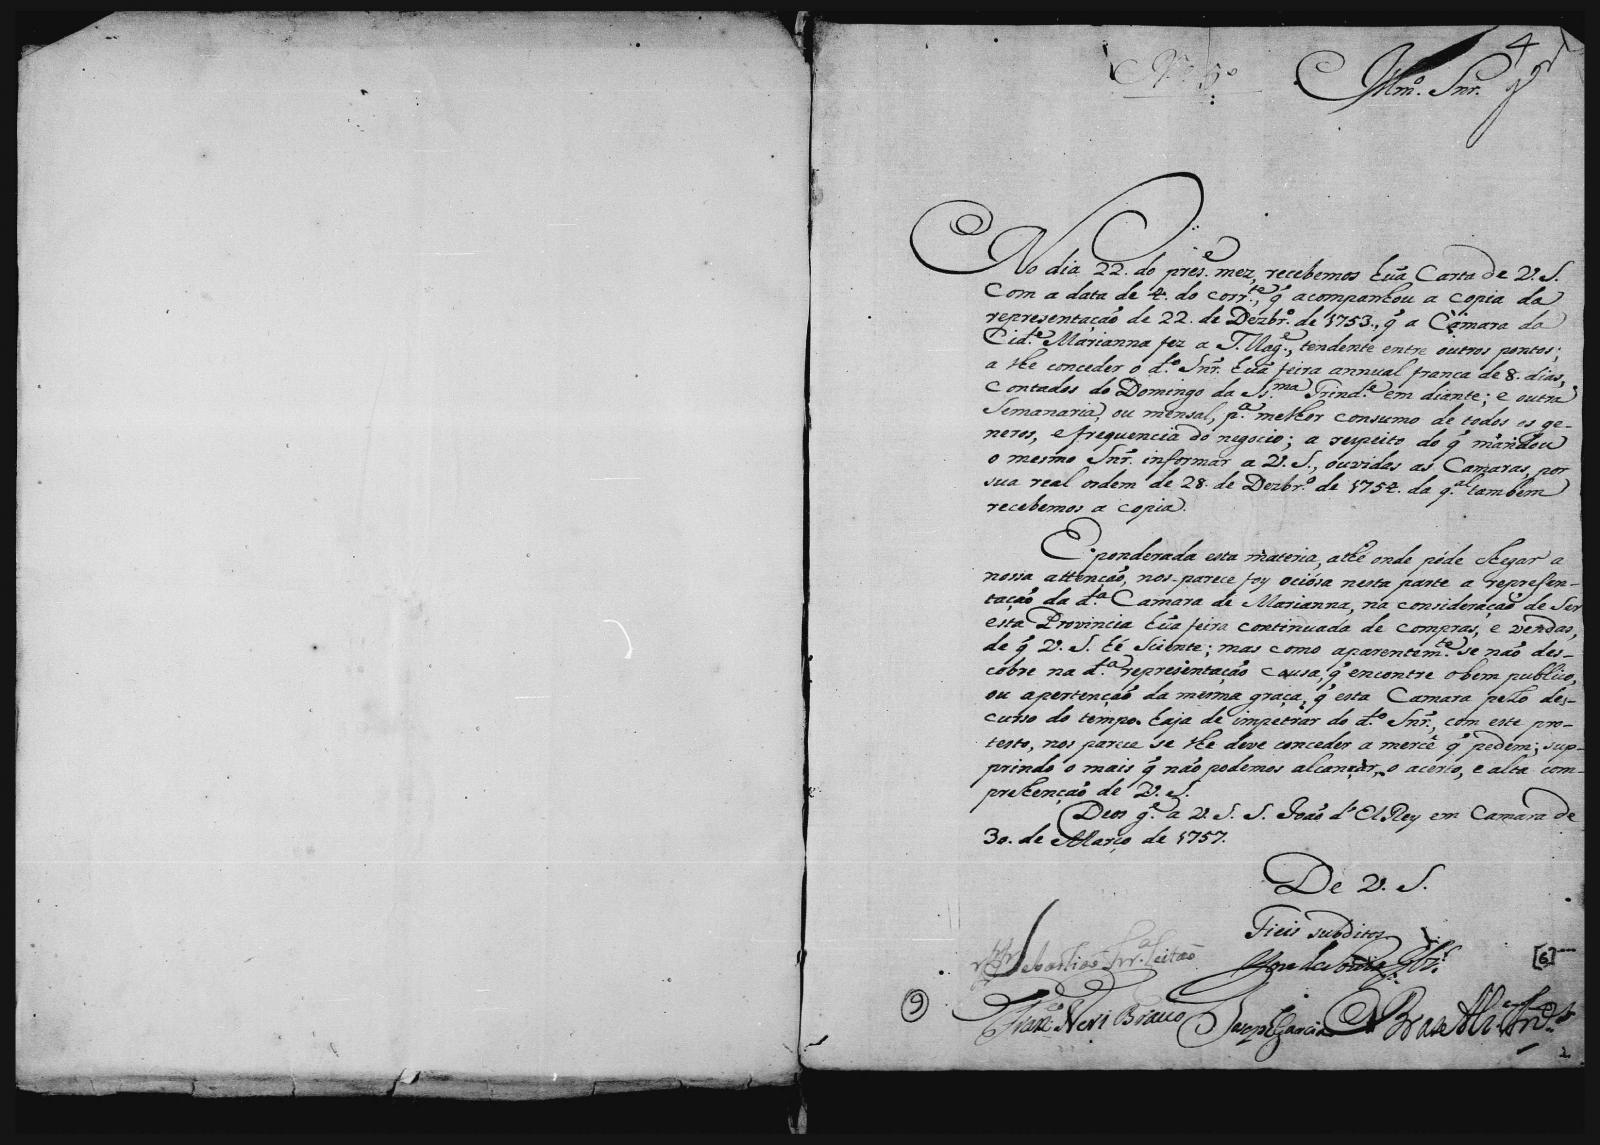 4
Illmº. Snr.
No dia 22. do presᵉ. mez, recebemos hũa Carta de V. S.
Com a data de 4. do corr.ᵗᵉ, q̃ acompanhou a copia da
representação de 22. de Dezbrº. de 1753., q̃ a Camara da
Cid.ᵉ Marianna fez a S. Mag.ᵉ, tendente entre outros pontos;
a lhe conceder o d.º Snr. hũa feira annual franca de 8. dias,
contados do Domingo da Ss.ᵐᵃ Trind.ᵉ em diante; e outra
Semanaria, ou mensal, p.ᵃ melhor consumo de todos os ge-
neros, e frequencia do negocio; a respeito do q̃ mandou
o mesmo Snr. informar a V. S., ouvidas as Camaras, por
sua real ordem de 28. de Dezbr.º de 1754. da q.ᵃˡ tambem
recebemos a copia.
E ponderada esta materia, athé onde póde chegar a
nossa attenção, nos-parece foy ociósa nesta parte a represen-
tação da d.ᵃ Camara de Marianna, na consideração de Ser
esta Provincia hũa feira continuada de compras, e vendas,
de q̃ V. S. hé Sciente; mas como aparentem.ᵗᵉ se não des-
cobre na d.ᵗᵃ representação causa, q̃ encontre o bem publico,
ou apertenção da mesma graça, q̃ esta Camara pello des-
curso do tempo haja de impetrar do d.º Snr., com este pro-
testo, nos parece se lhe deve conceder a mercê q̃ pedem; sup-
prindo o mais q̃ não podemos alcançar, o acerto, e alta com-
prehenção de V. S.
Deos g.ᵉ a V. S. S. João d'El Rey em Camara de
30. de Março de 1757.
De V. S.
Fieis subditos
Sebastiao Frr.ᵃ Leitaõ
[6]
9
Fran.ᶜᵒ Neri Bravo
Garcia
Bras Alz
2